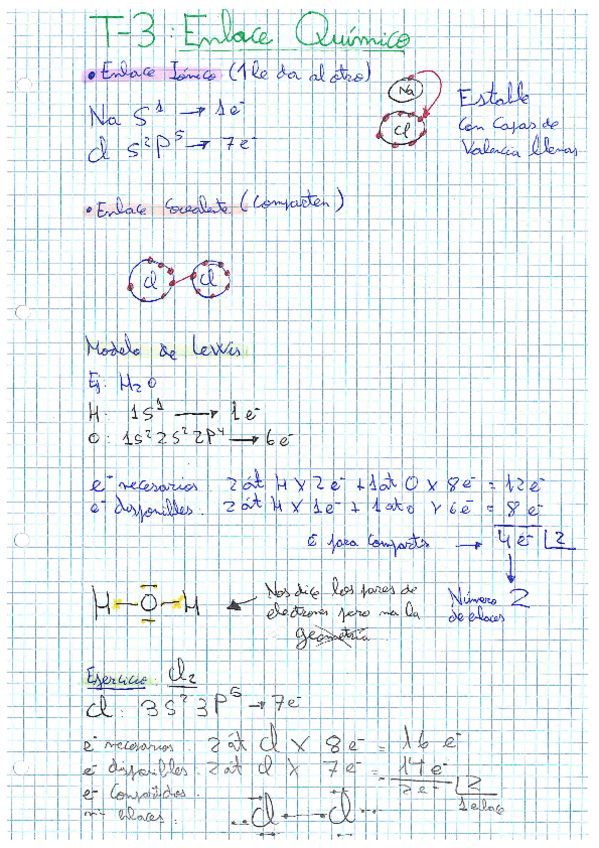 T-3: Enlace Químico
• Enlace Iónico (1 le da al otro)
Na S¹ → 1e⁻
Cl S²P⁵ → 7e⁻
Na
Cl
Estable
con Capas de
Valencia llenas
• Enlace Covalente (Comparten)
Cl Cl
Modelo de Lewis
Ej: H₂O
H: 1S¹ → 1e⁻
O: 1S² 2S² 2P⁴ → 6e⁻
e⁻ necesarios 2 át H x 2e⁻ + 1 at O x 8e⁻ = 12e⁻
e⁻ disponibles. 2 át H x 1e⁻ + 1 at O x 6e⁻ = 8e⁻
e⁻ para compartir → 4e⁻ 2
H-O-H
Nos dice los pares de
electrones pero no la
geometría
Número 2
de enlaces
Ejercicio: Cl₂
Cl: 3S² 3P⁵ → 7e⁻
e⁻ necesarios. 2 át Cl x 8e⁻ = 16 e⁻
e⁻ disponibles. 2 át Cl x 7e⁻ = 14e⁻
e⁻ Compartidos. 2e⁻ 2
1 enlace
nº enlaces: Cl-Cl